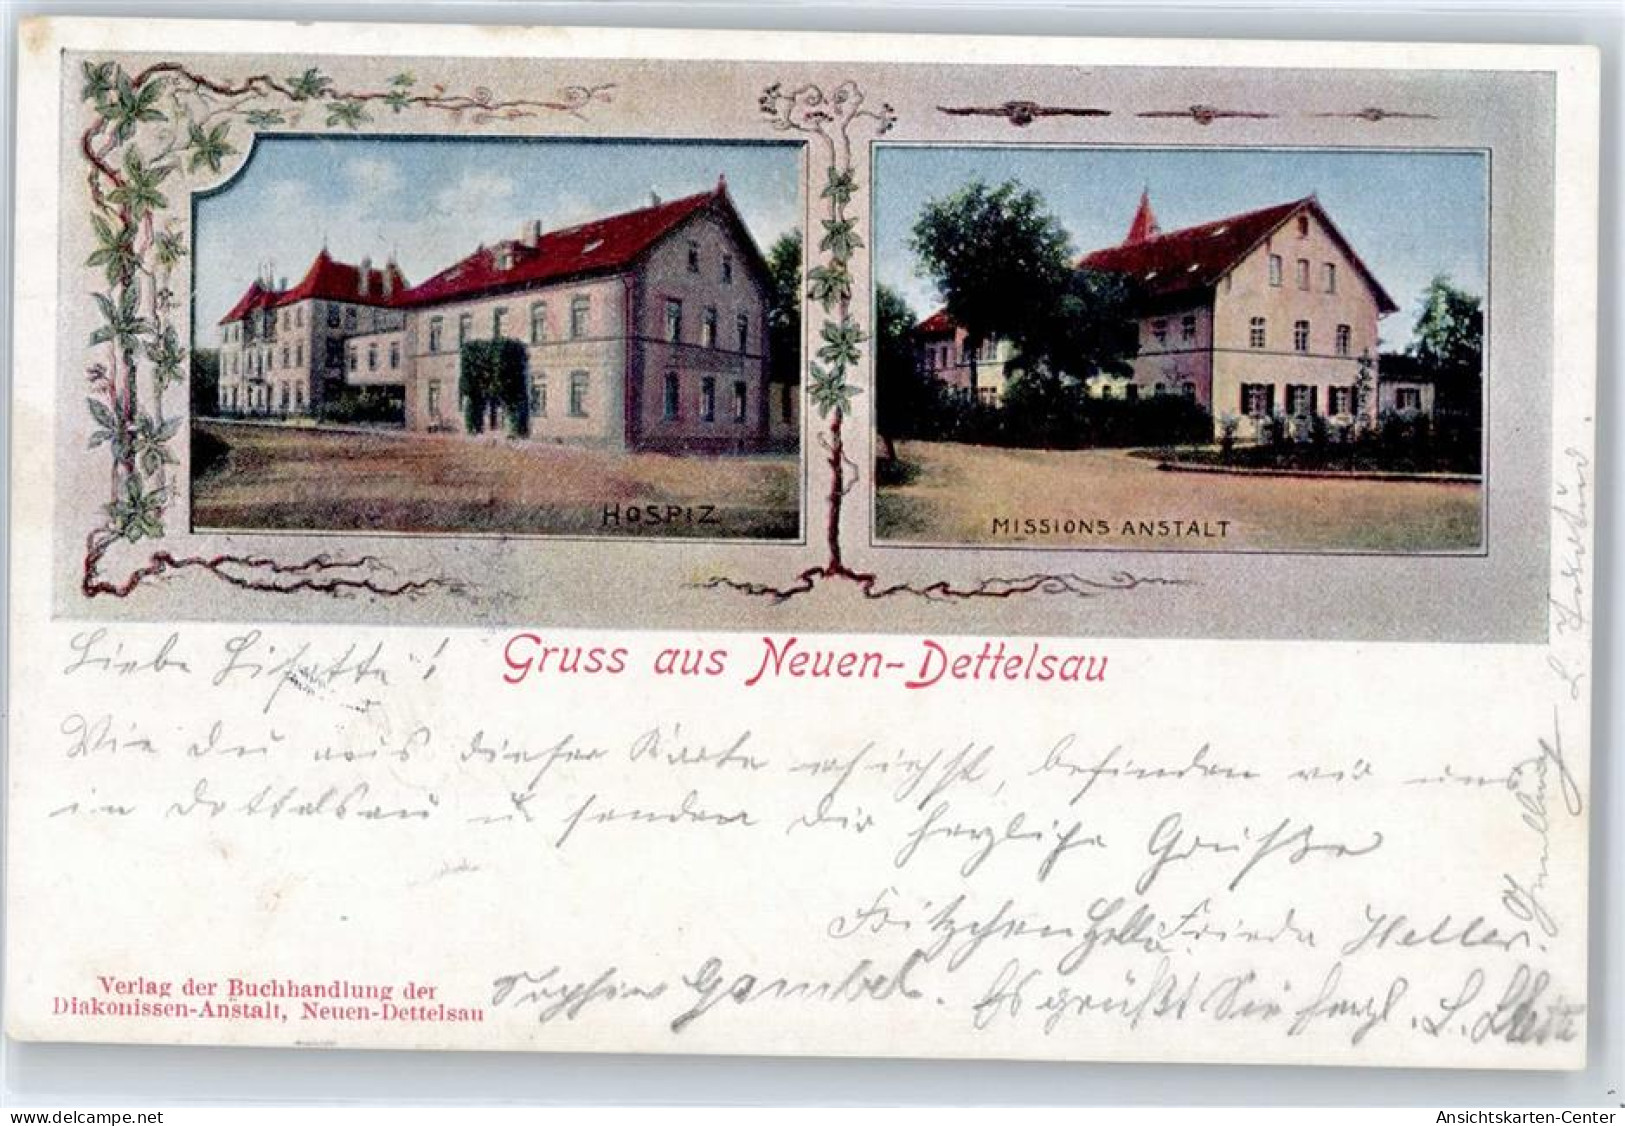 HOSPIZ
MISSIONS ANSTALT
Gruss aus Neuen-Dettelsau
Liebe Lisette!
Wie du aus dieser Karte ersiehst, befinden wir uns
in Dettelsau u senden Dir herzliche Grüße
Fritzchen Frieda Heller.
Sophie Gambel. Es grüßt Sie herzl. L.
Verlag der Buchhandlung der
Diakonissen-Anstalt, Neuen-Dettelsau
delcampe.net
Ansichtskarten-Center